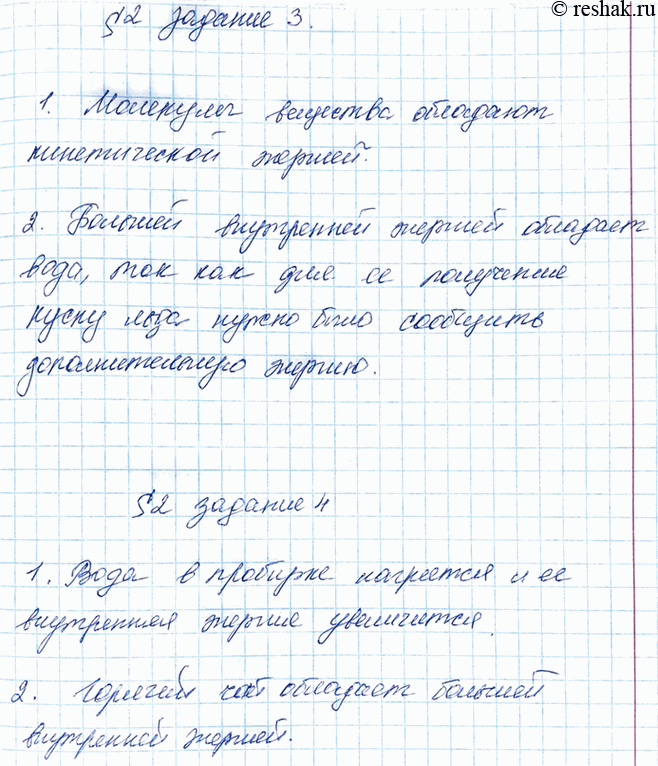 © reshak.ru
§2 Задание 3.
1. Молекулы вещества обладают
кинетической энергией.
2. Большей внутренней энергией обладает
вода, так как для ее получение
куску льда нужно было сообщить
дополнительную энергию.
§2 задание 4
1. Вода в пробирке нагреется и ее
внутренняя энергия увеличится.
2. Горячий чай обладает большей
внутренной энергией.